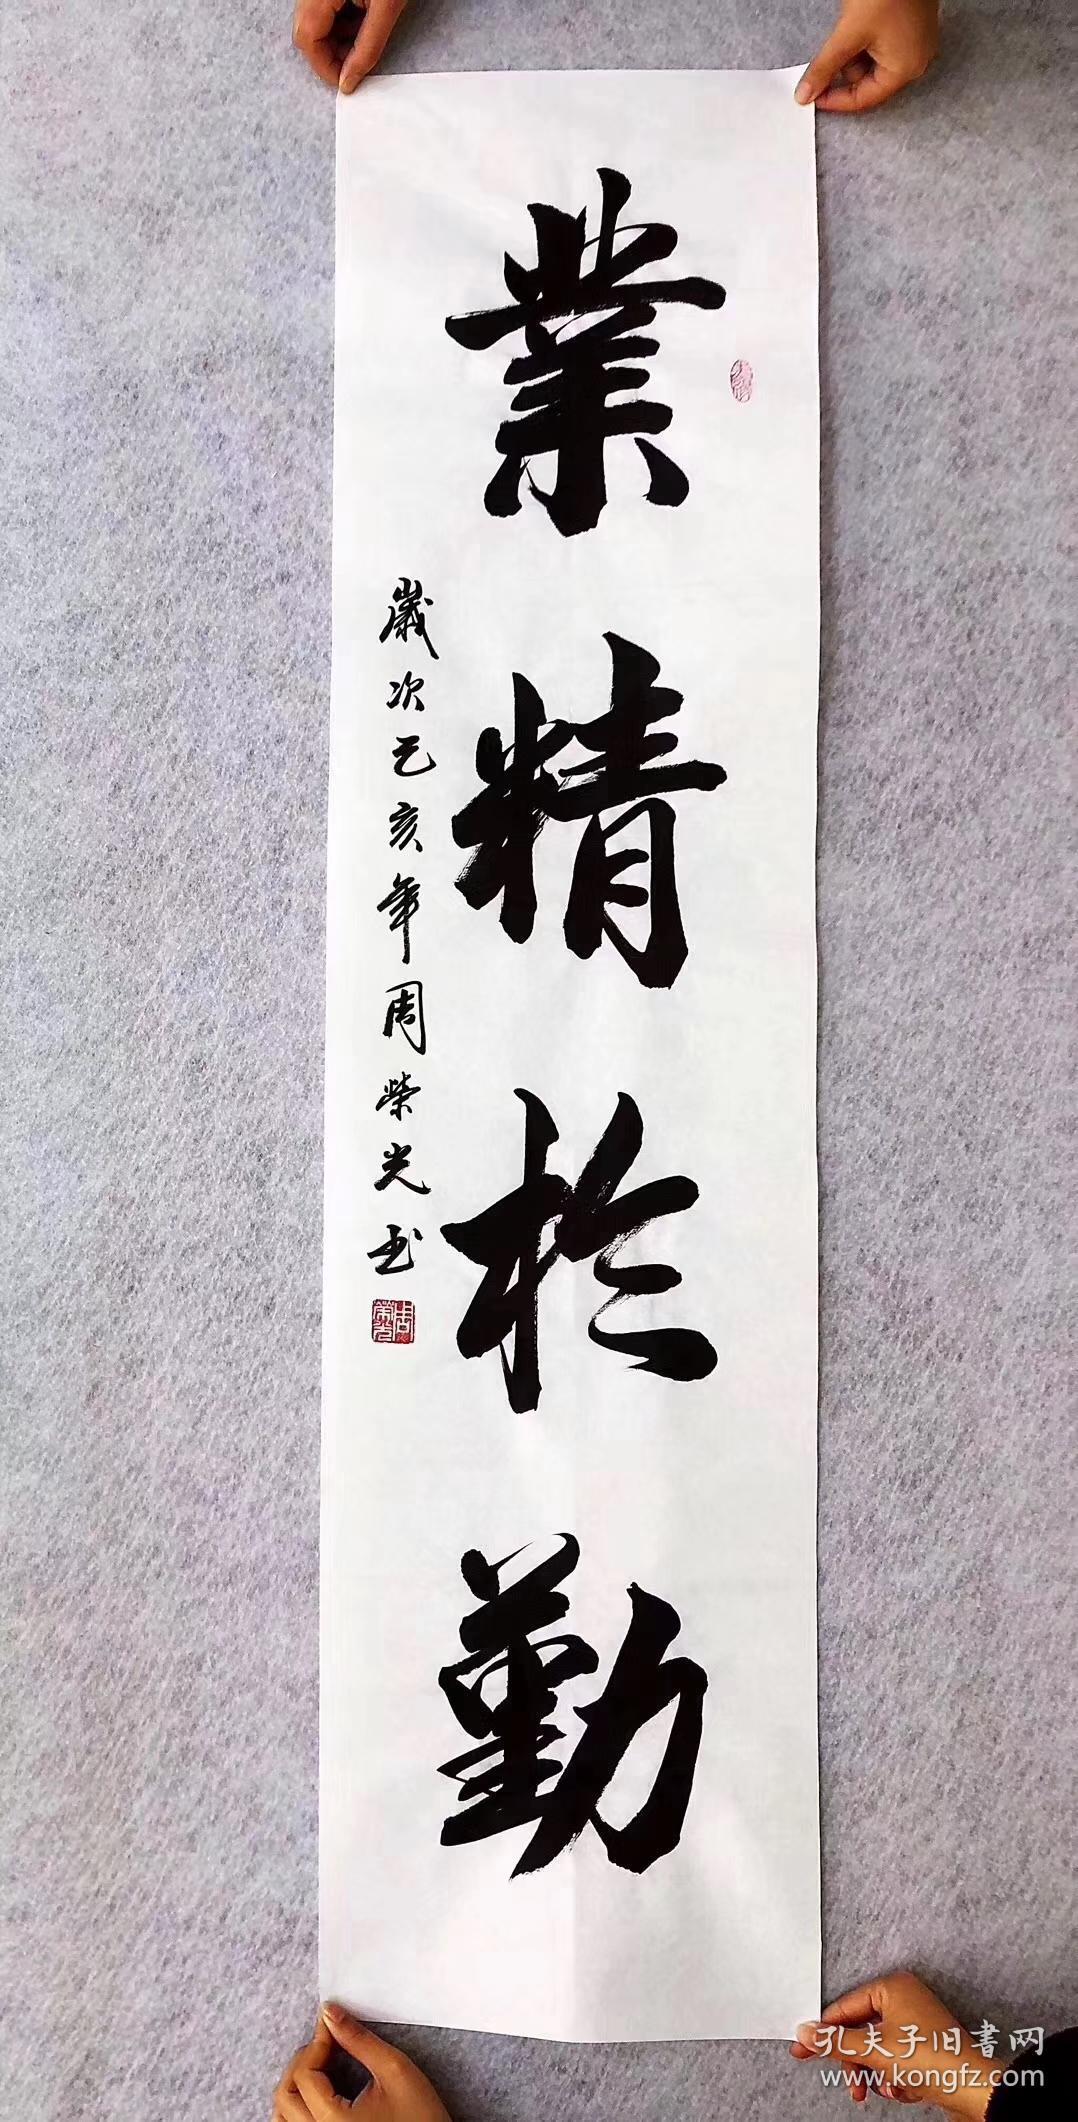 業精於勤
歲次己亥年周榮光书
周榮光
孔夫子旧書网
www.kongfz.com